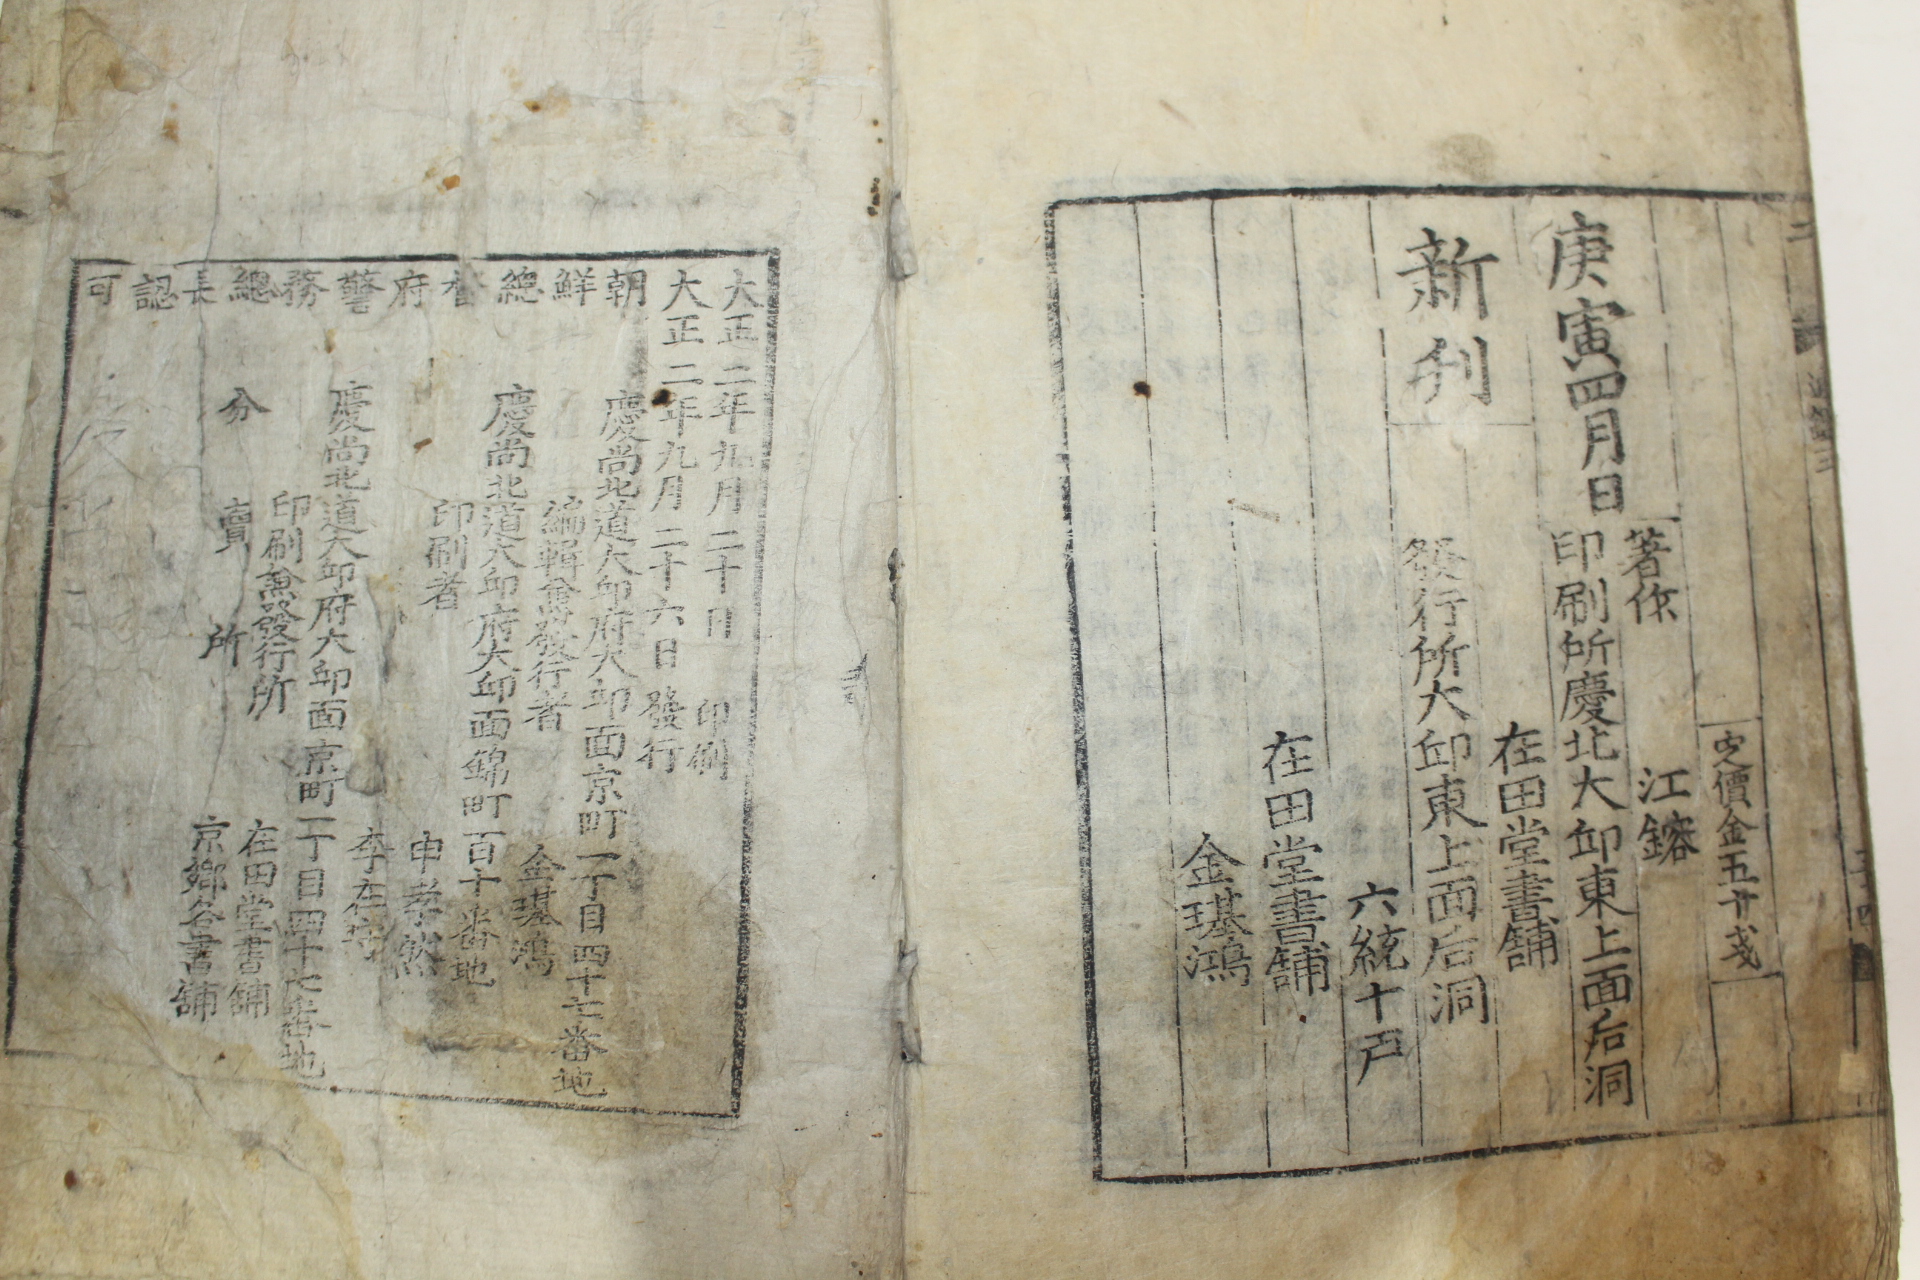 定價金五廿戔
庚寅四月日
著作 江鎔
印刷所慶北大邱東上面后洞
在田堂書舖
新刊
發行所大邱東上面后洞
六統十戸
在田堂書舖
金璂鴻
大正二年九月二十日 印刷
大正二年九月二十六日 發行
朝鮮總督府警務總長認可
慶尚北道大邱府大邱面京町一丁目四十七番地
編輯兼發行者 金璂鴻
慶尚北道大邱府大邱面錦町百十番地
印刷者 申孝
慶尚北道大邱府大邱面京町一丁目四十七番地
李在
印刷兼發行所 在田堂書舖
分賣所 京鄉各書舖